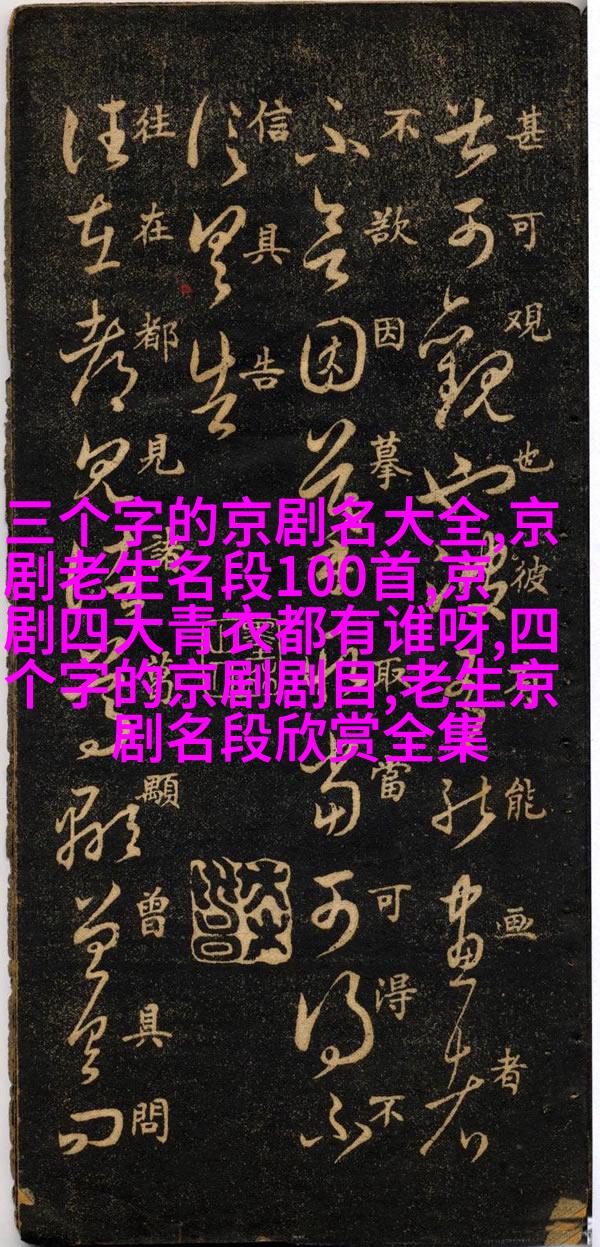 甚可观也彼能画者
不欲因摹取當可得不
信具告
往在都見諸葛顯曾具問
三个字的京剧名大全,京
剧老生名段100首,京
剧四大青衣都有谁呀,四
个字的京剧剧目,老生京
剧名段欣赏全集